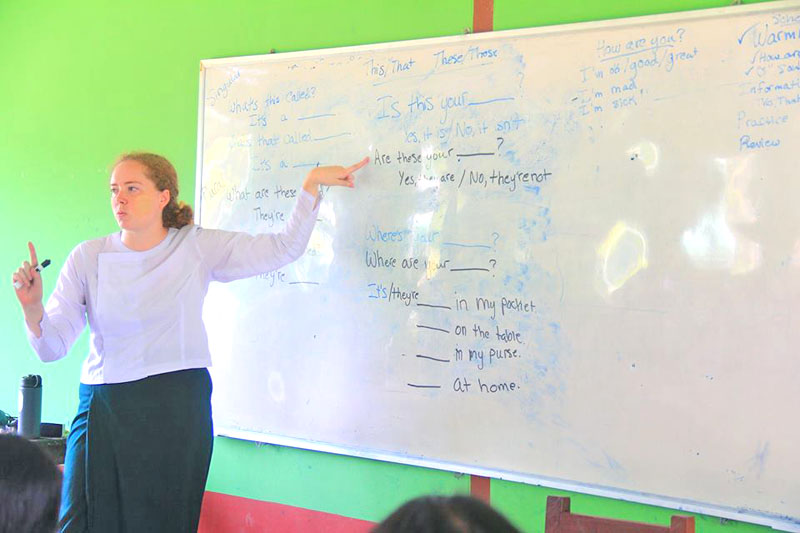 Singular
What's this called?
It's a ____
What's that called ____
It's a ____
What are these
They're
They're ____
This/That These/Those
Is this your ____
Yes, it is No, it isn't
Are these your ____?
Yes, they are / No, they're not
Where's your ____?
Where are your ____?
It's/they're ____ in my pocket
____ on the table
____ in my purse.
____ at home.
How are you?
I'm ok/good/great
I'm mad,
I'm sick,
✓ Warm
✓ How are
Informat
Practice
Review